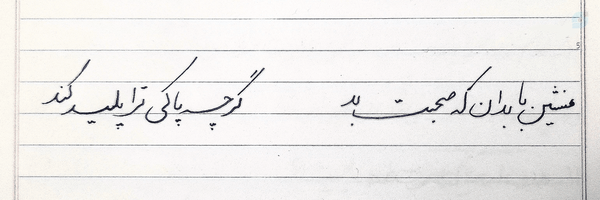 منشین با بدان که صحبت بد گرچه پاکی ترا پلید کند